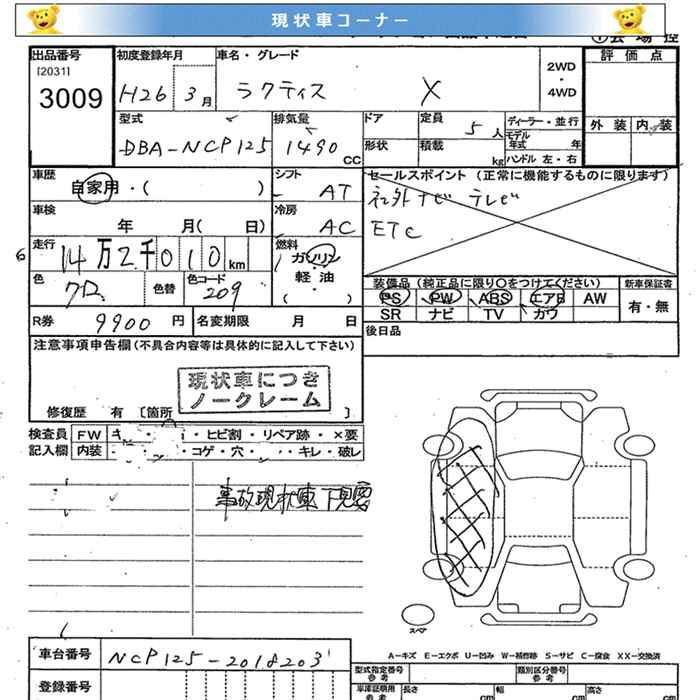 現状車コーナー
出品番号 初度登録年月 車名・グレード 2WD・4WD 評価点
[2031]
3009 H26 3月 ラクティス X
型式 排気量 ドア 定員 5人 ディーラー・並行 外装 内装
DBA-NCP125 1490CC 形状 積載 kg モデル年式 年
ハンドル 左・右
車歴 シフト セールスポイント (正常に機能するものに限ります)
自家用・( ) AT 社外ナビ テレビ
車検 冷房 ETC
年 月( 日) AC
6 走行 14万2千010km 燃料 ガソリン・軽油・( )
色 クロ 色替 色コード 209
装備品 (純正品に限り○をつけてください) 新車保証書
PS PW ABS エアB AW 有・無
R券 9900円 名変期限 月 日 SR ナビ TV カワ
注意事項申告欄(不具合内容等は具体的に記入して下さい) 後日品
現状車につき
ノークレーム
修復歴 有 [箇所 ]
検査員 FW キ ・ヒビ割・リペア跡・×要
記入欄 内装 ・コゲ・穴・ ・キレ・破レ
事故現状車 下見要
スペア
A-キズ E-エクボ U-凹み W-補修跡 S-サビ C-腐食 XX-交換済
車台番号 NCP125-2018203
型式指定番号 参考 類別区分番号 参考
登録番号 車庫証明用 参考 長さ cm 幅 cm 高さ cm